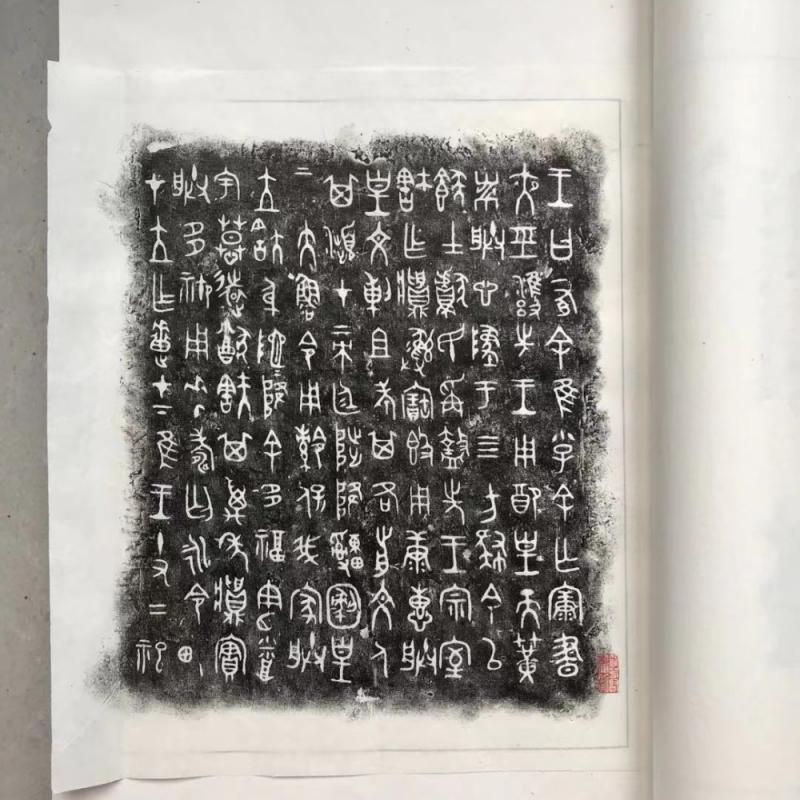 王曰有余隹小子余亡康晝
夜巠雝先王用配皇天簧
黹朕心墜于四方肆余以
士獻民爯盩先王宗室
㝬乍彝寶簋用康惠朕
皇文剌且考其各前文人
其瀕才帝廷陟降皇
帝大魯令用保我家朕
立㝬身阤=降余多福憲烝
宇慕遠猷㝬其萬年實
朕多禦用壽匄永令畯
才立乍疐才下隹王十又二祀